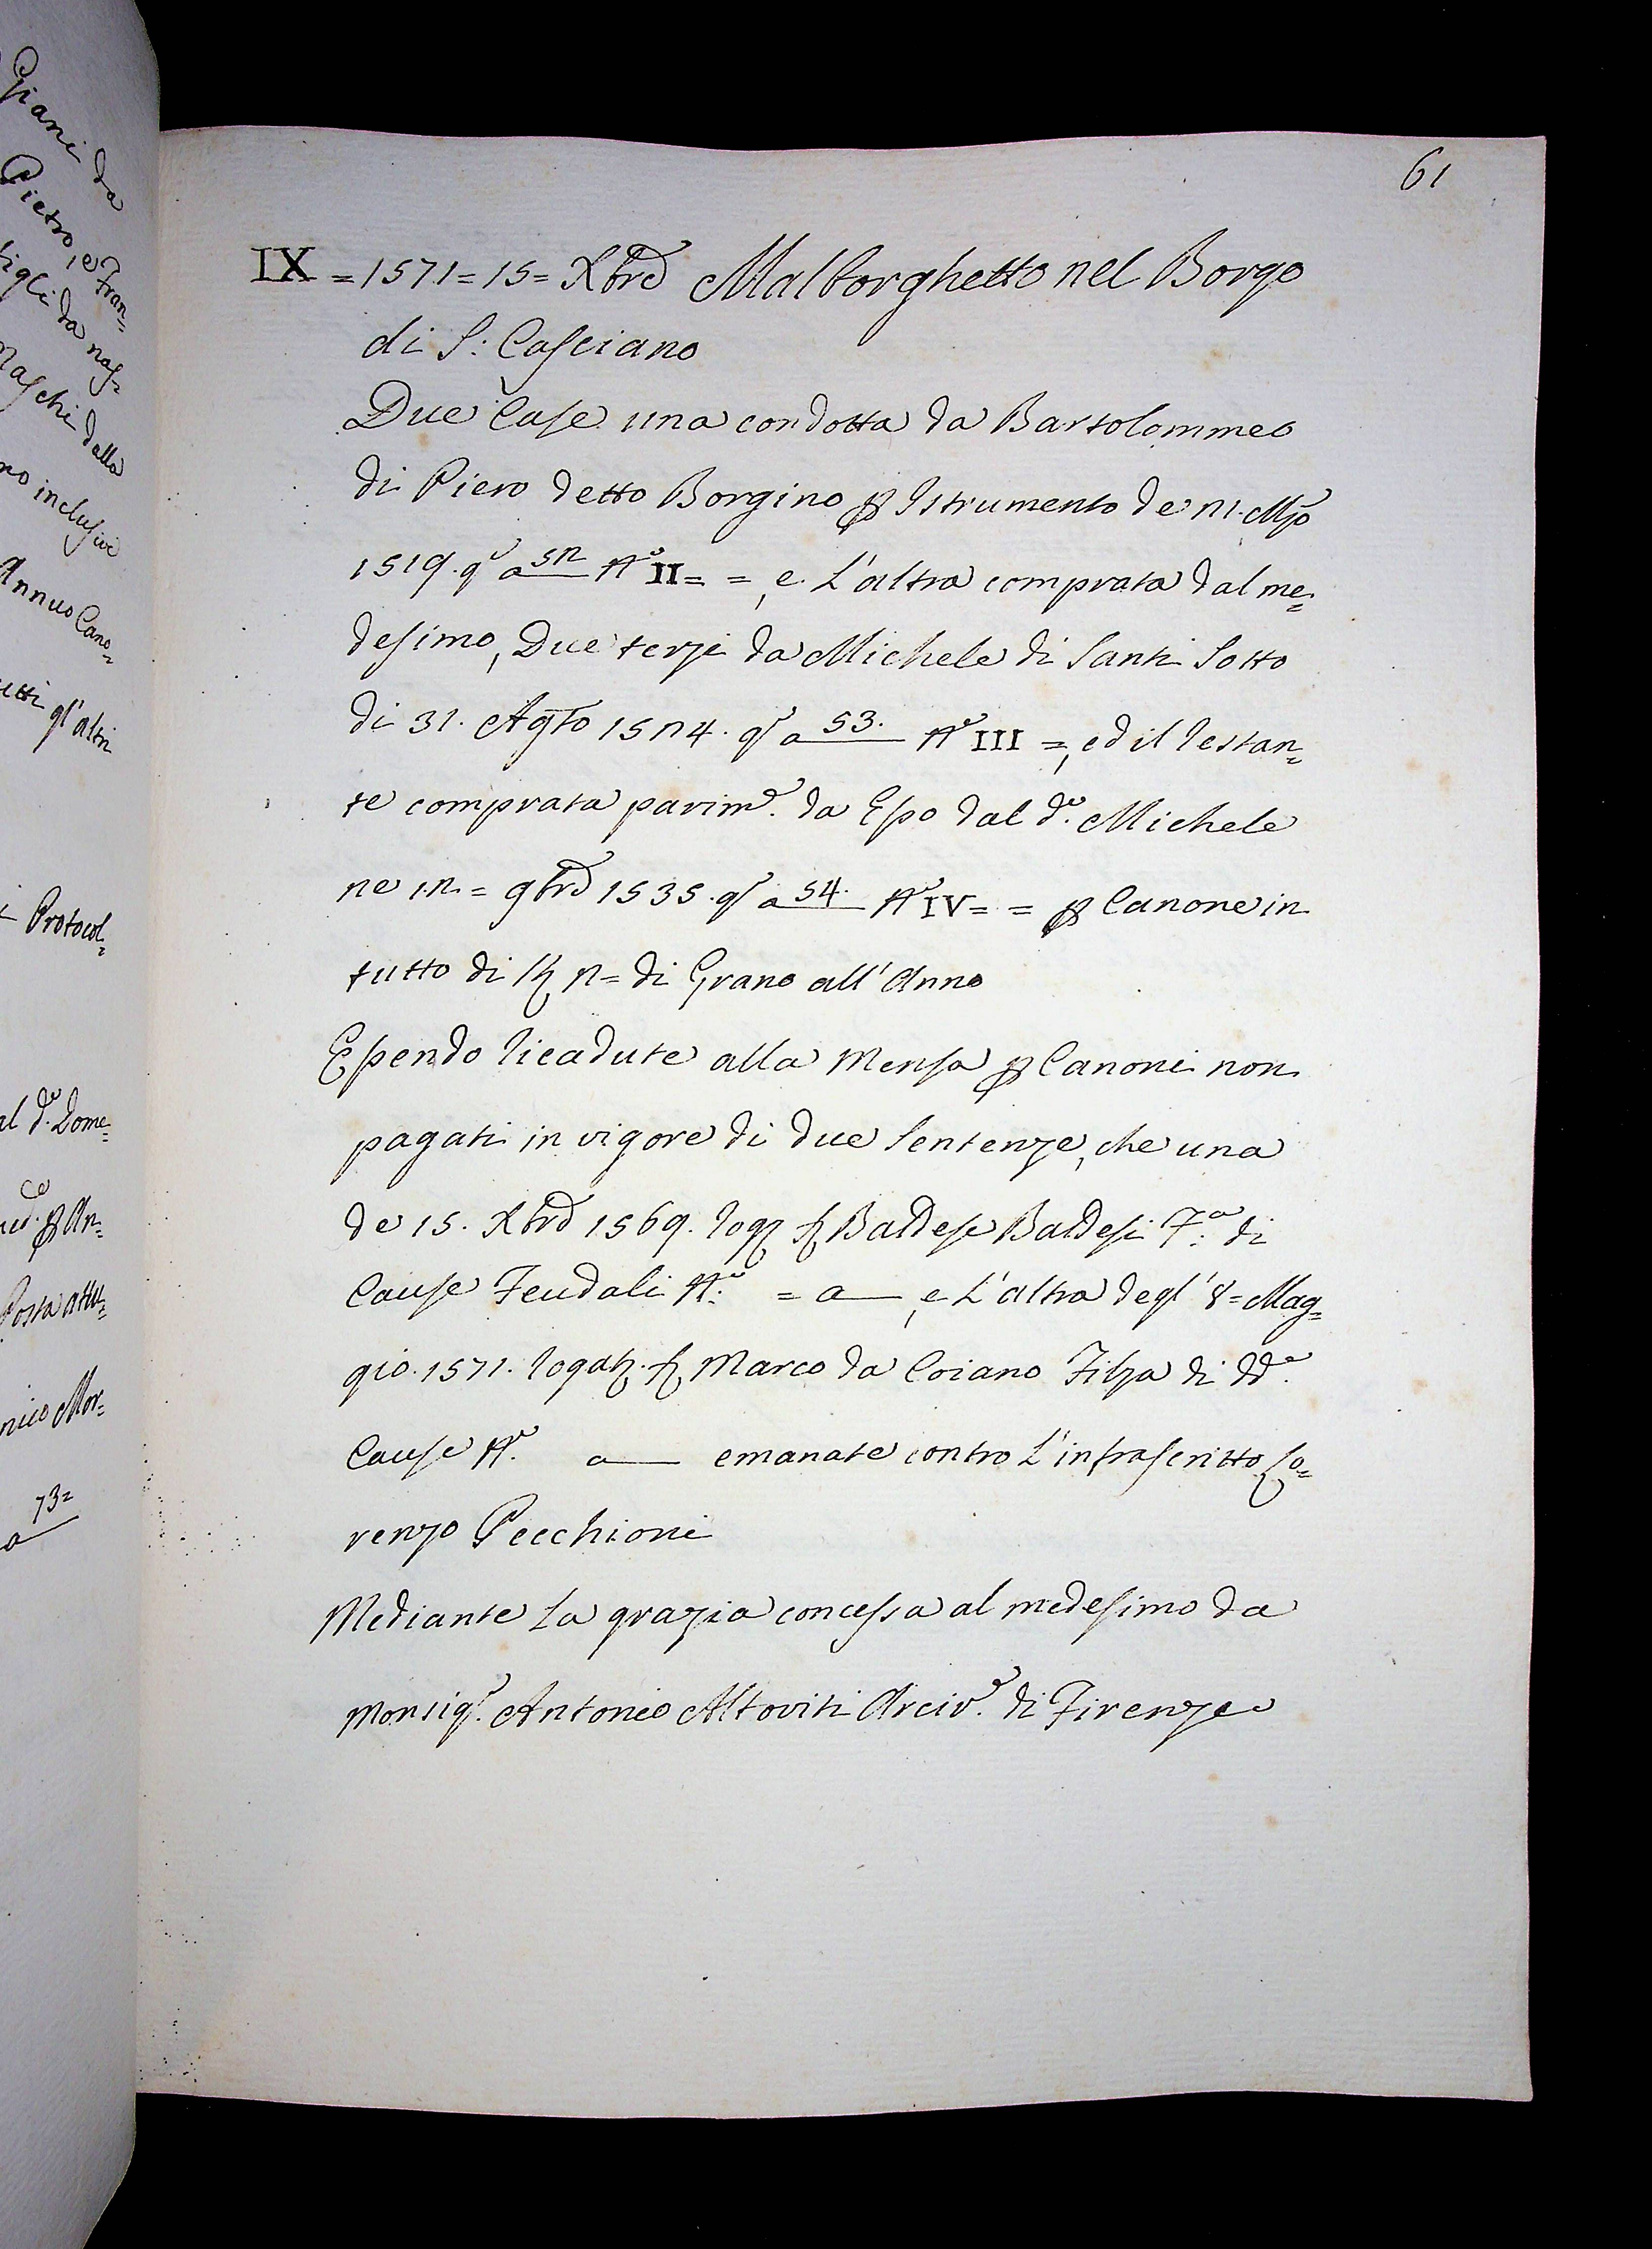 Giani da
Pietro, e Fran=
figli da nas=
Maschi dalla
no inclusive
Annuo Cano=
utti gl'altri
Protocol=
al d.º Dome=
Posta attu=
nico Mor=
73=
a
61
IX = 1571 = 15 = Xbre Malborghetto nel Borgo
di S: Casciano
Due Case una condotta da Bartolommeo
di Piero detto Borgino p Istrumento de 21. Mzo
1519. qo a 52 Nº II = =, e L'altra comprata dal me=
desimo, Due terzi da Michele di Santi Sotto
di 31. Agto 1524. qo a 53. Nº III =, ed il restan=
te comprata parimte. da Esso dal d.º Michele
ne 12 = 9bre 1535. qo a 54. Nº IV = = p Canone in
tutto di 2 = di Grano all'Anno
Essendo ricadute alla Mensa p Canoni non
pagati in vigore di due Sentenze, che una
de 15. Xbre 1569. rog Baldese Baldesi Fa: di
Cause Feudali Nº: = a — , e L'altra degl' 8 = Mag=
gio. 1571. rogat. Marco da Coiano Filza di dde.
Cause Nº. a — emanate contro L'infrascritto Lo=
renzo Pecchioni
Mediante La grazia concessa al medesimo da
Monsigr. Antonio Altoviti Arcivo. di Firenze